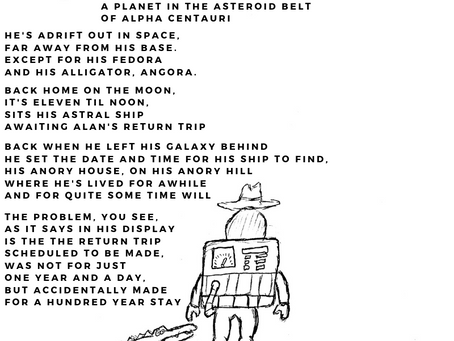 A PLANET IN THE ASTEROID BELT
OF ALPHA CENTAURI
HE'S ADRIFT OUT IN SPACE,
FAR AWAY FROM HIS BASE.
EXCEPT FOR HIS FEDORA
AND HIS ALLIGATOR, ANGORA.
BACK HOME ON THE MOON,
IT'S ELEVEN TIL NOON,
SITS HIS ASTRAL SHIP
AWAITING ALAN'S RETURN TRIP
BACK WHEN HE LEFT HIS GALAXY BEHIND
HE SET THE DATE AND TIME FOR HIS SHIP TO FIND,
HIS ANORY HOUSE, ON HIS ANORY HILL
WHERE HE'S LIVED FOR AWHILE
AND FOR QUITE SOME TIME WILL
THE PROBLEM, YOU SEE,
AS IT SAYS IN HIS DISPLAY
IS THE THE RETURN TRIP
SCHEDULED TO BE MADE,
WAS NOT FOR JUST
ONE YEAR AND A DAY,
BUT ACCIDENTALLY MADE
FOR A HUNDRED YEAR STAY